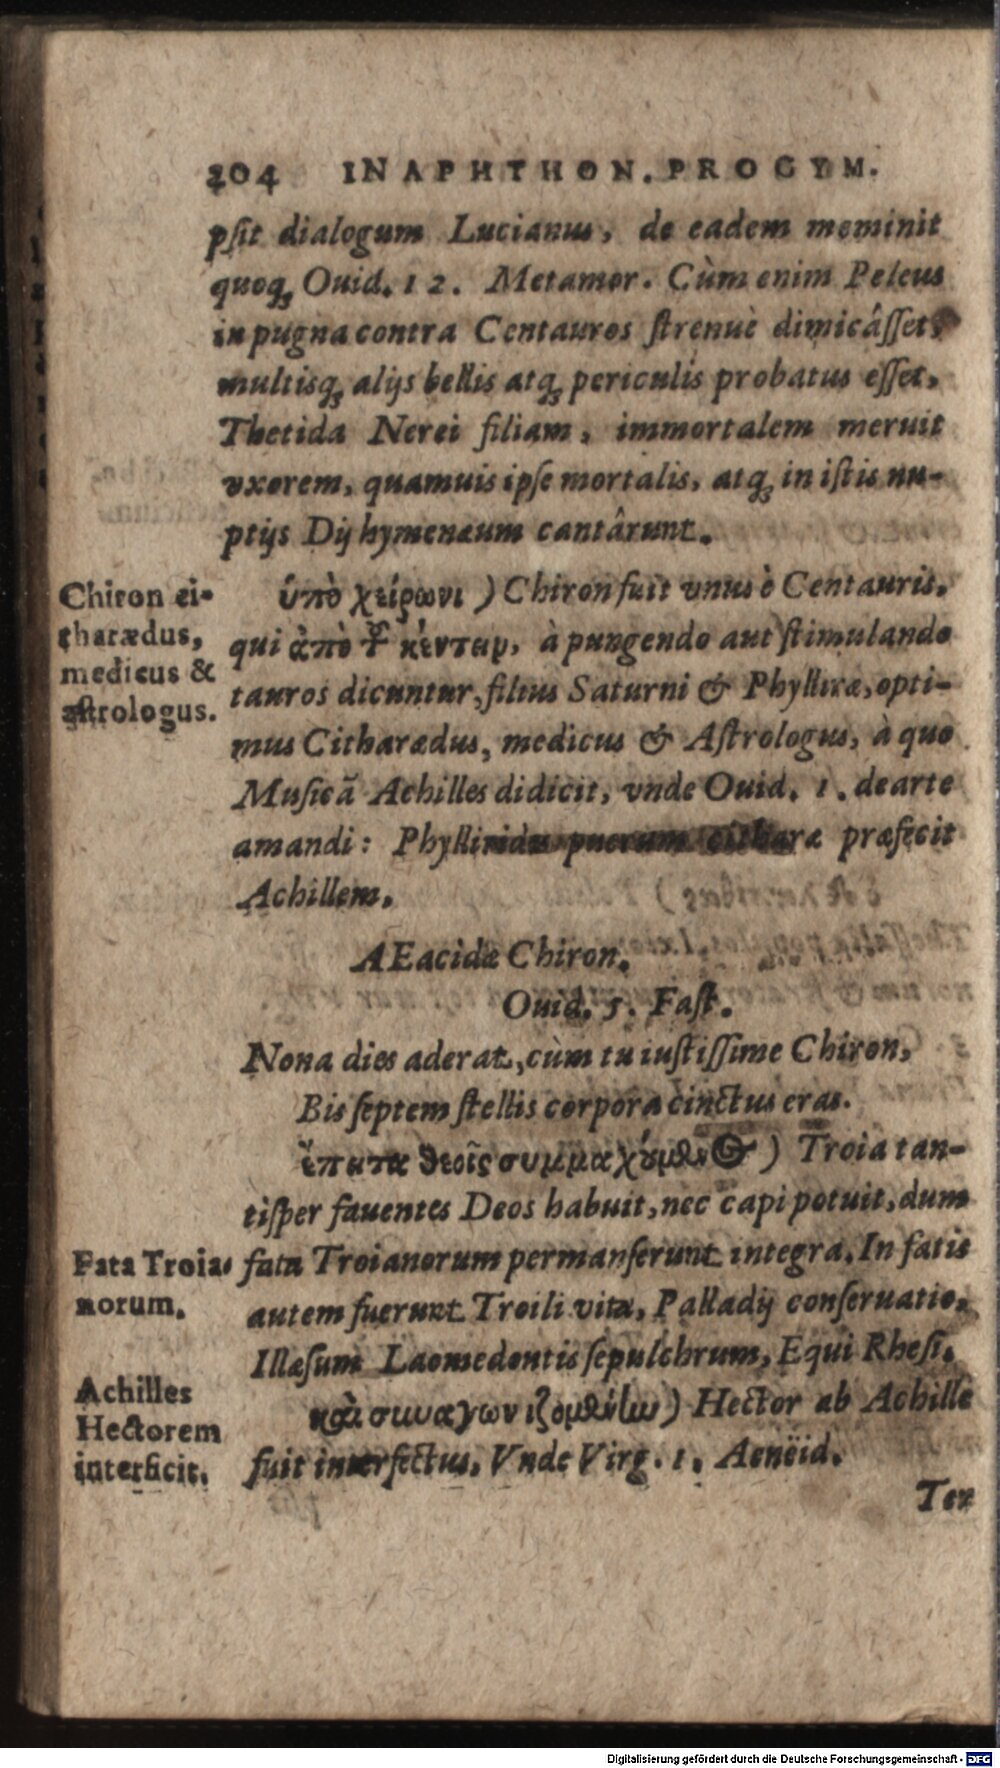 204 IN APHTHON. PROGYM.
pſit dialogum Lucianus, de eadem meminit
quoq; Ouid. 12. Metamor. Cùm enim Peleus
in pugna contra Centauros ſtrenuè dimicâſſet,
multisq; alijs bellis atq; periculis probatus eſſet,
Thetida Nerei filiam, immortalem meruit
vxorem, quamuis ipſe mortalis, atq; in iſtis nu-
ptijs Dij hymenæum cantârunt.
Chiron ci-
tharædus,
medicus &
aſtrologus.
ὑπὸ χείρωνι ) Chiron fuit vnus è Centauris,
qui ἀπὸ τοῦ κέντειν, à pungendo aut ſtimulando
tauros dicuntur, filius Saturni & Phylliræ, opti-
mus Citharædus, medicus & Aſtrologus, à quo
Muſicã Achilles didicit, vnde Ouid. 1. de arte
amandi: Phylliridæ puerum citharæ præfecit
Achillem.
AEacidæ Chiron.
Ouid. 5. Faſt.
Nona dies aderat, cùm tu iuſtiſſime Chiron,
Bis ſeptem ſtellis corpora cinctus eras.
ἔπειτα θεοῖς συμμαχούμενος ) Troia tan-
tiſper fauentes Deos habuit, nec capi potuit, dum
Fata Troia-
norum.
fata Troianorum permanſerunt integra. In fatis
autem fuerunt Troili vita, Palladij conſeruatio,
Illæſum Laomedontis ſepulchrum, Equi Rheſi.
Achilles
Hectorem
interficit.
καὶ συναγωνιζομένην ) Hector ab Achille
fuit interfectus, Vnde Virg. 1. Aenëid.
Ter
Digitalisierung gefördert durch die Deutsche Forschungsgemeinschaft - DFG